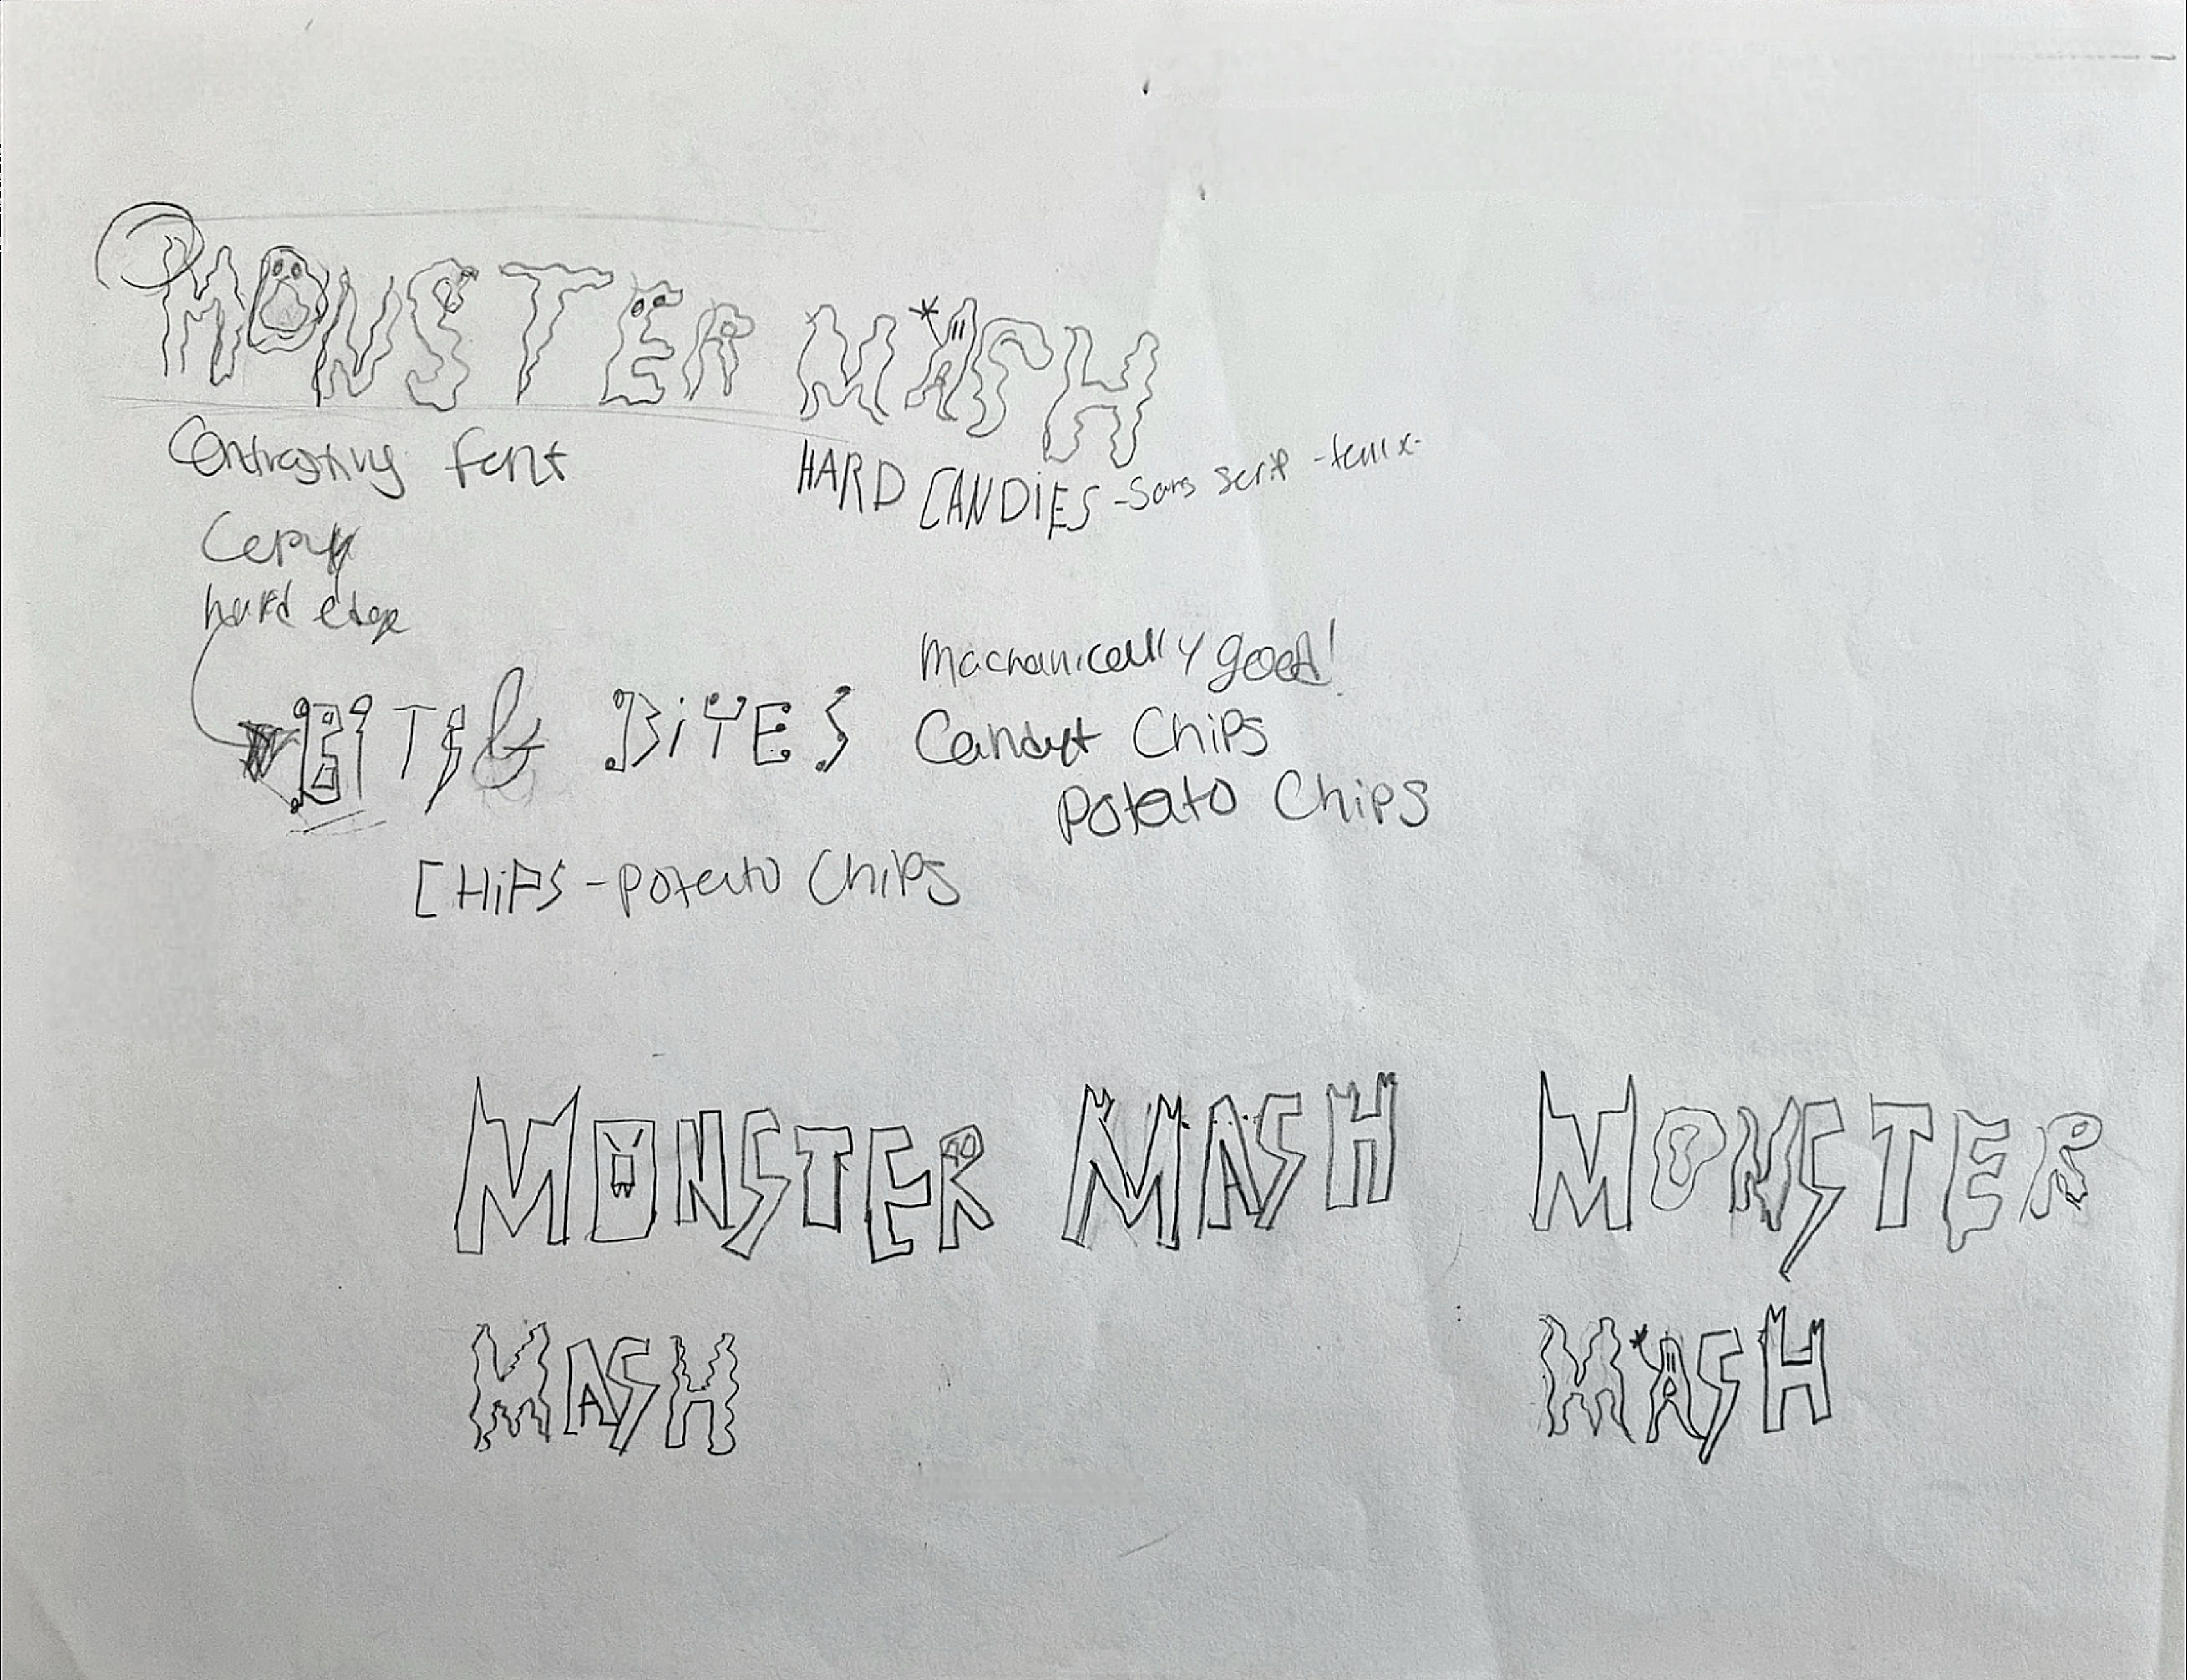 MONSTER MASH
Contrasting font
HARD CANDiES - Sans serif -
hard edge
Machanically good!
BiTS & BiTES
Candy Chips
Potato Chips
CHiPS - Potato Chips
MONSTER MASH
MONSTER
MASH
MASH